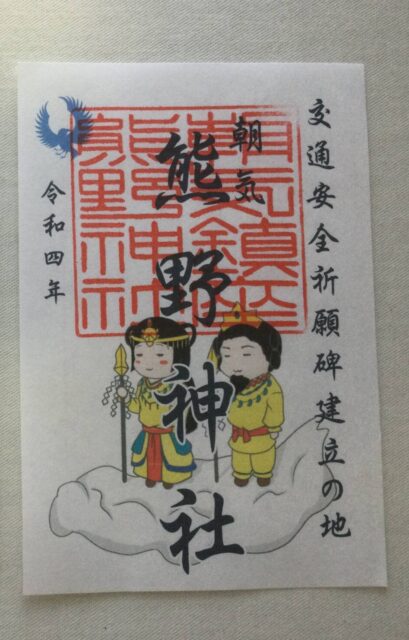 交通安全祈願碑建立の地
朝気
熊野神社
令和四年